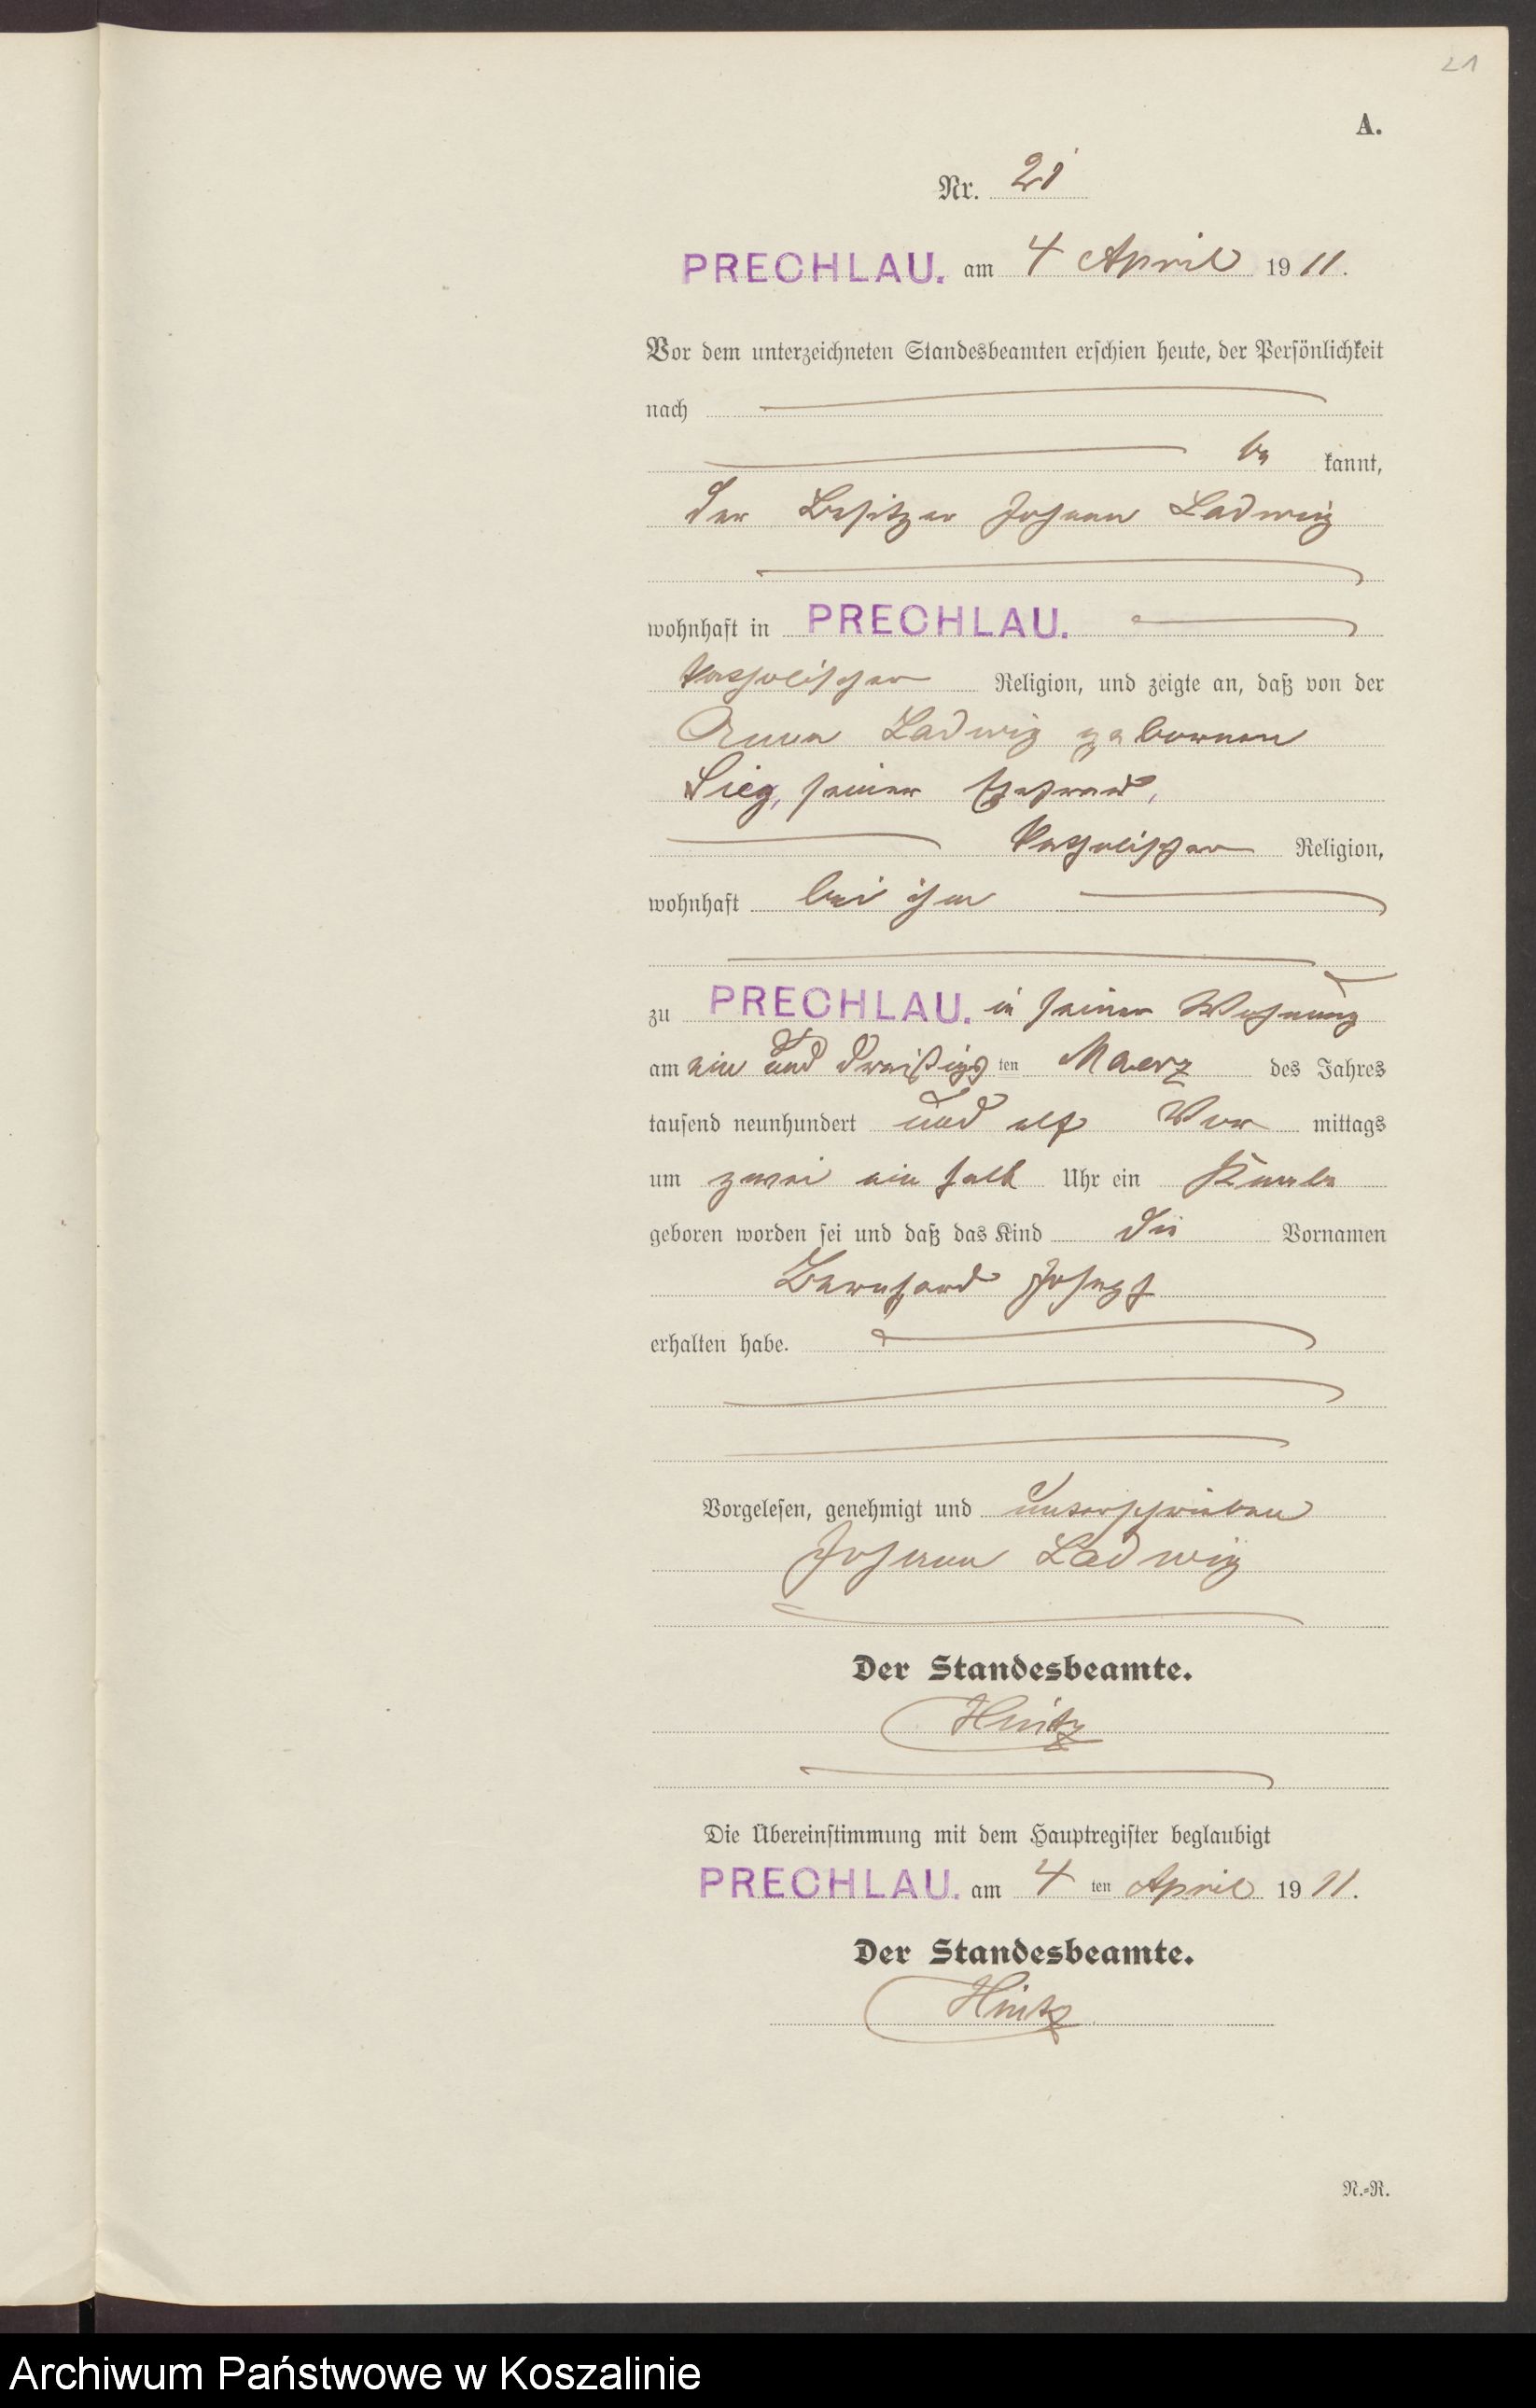 21
A.
Nr. 21
PRECHLAU. am 4 April 1911.
Vor dem unterzeichneten Standesbeamten erschien heute, der Persönlichkeit
nach
be kannt,
der Besitzer Johann Ladwig
wohnhaft in PRECHLAU.
katholischer Religion, und zeigte an, daß von der
Anna Ladwig gebornen
Sieg, seiner Ehefrau,
katholischer Religion,
wohnhaft bei ihm
zu PRECHLAU. in seiner Wohnung
am ein und dreißigs ten Maerz des Jahres
tausend neunhundert und elf Vor mittags
um zwei ein halb Uhr ein Knabe
geboren worden sei und daß das Kind die Vornamen
Bernhard Joseph
erhalten habe.
Vorgelesen, genehmigt und unterschrieben
Johann Ladwig
Der Standesbeamte.
Hintz
Die Übereinstimmung mit dem Hauptregister beglaubigt
PRECHLAU. am 4 ten April 1911.
Der Standesbeamte.
Hintz
N.-R.
Archiwum Państwowe w Koszalinie